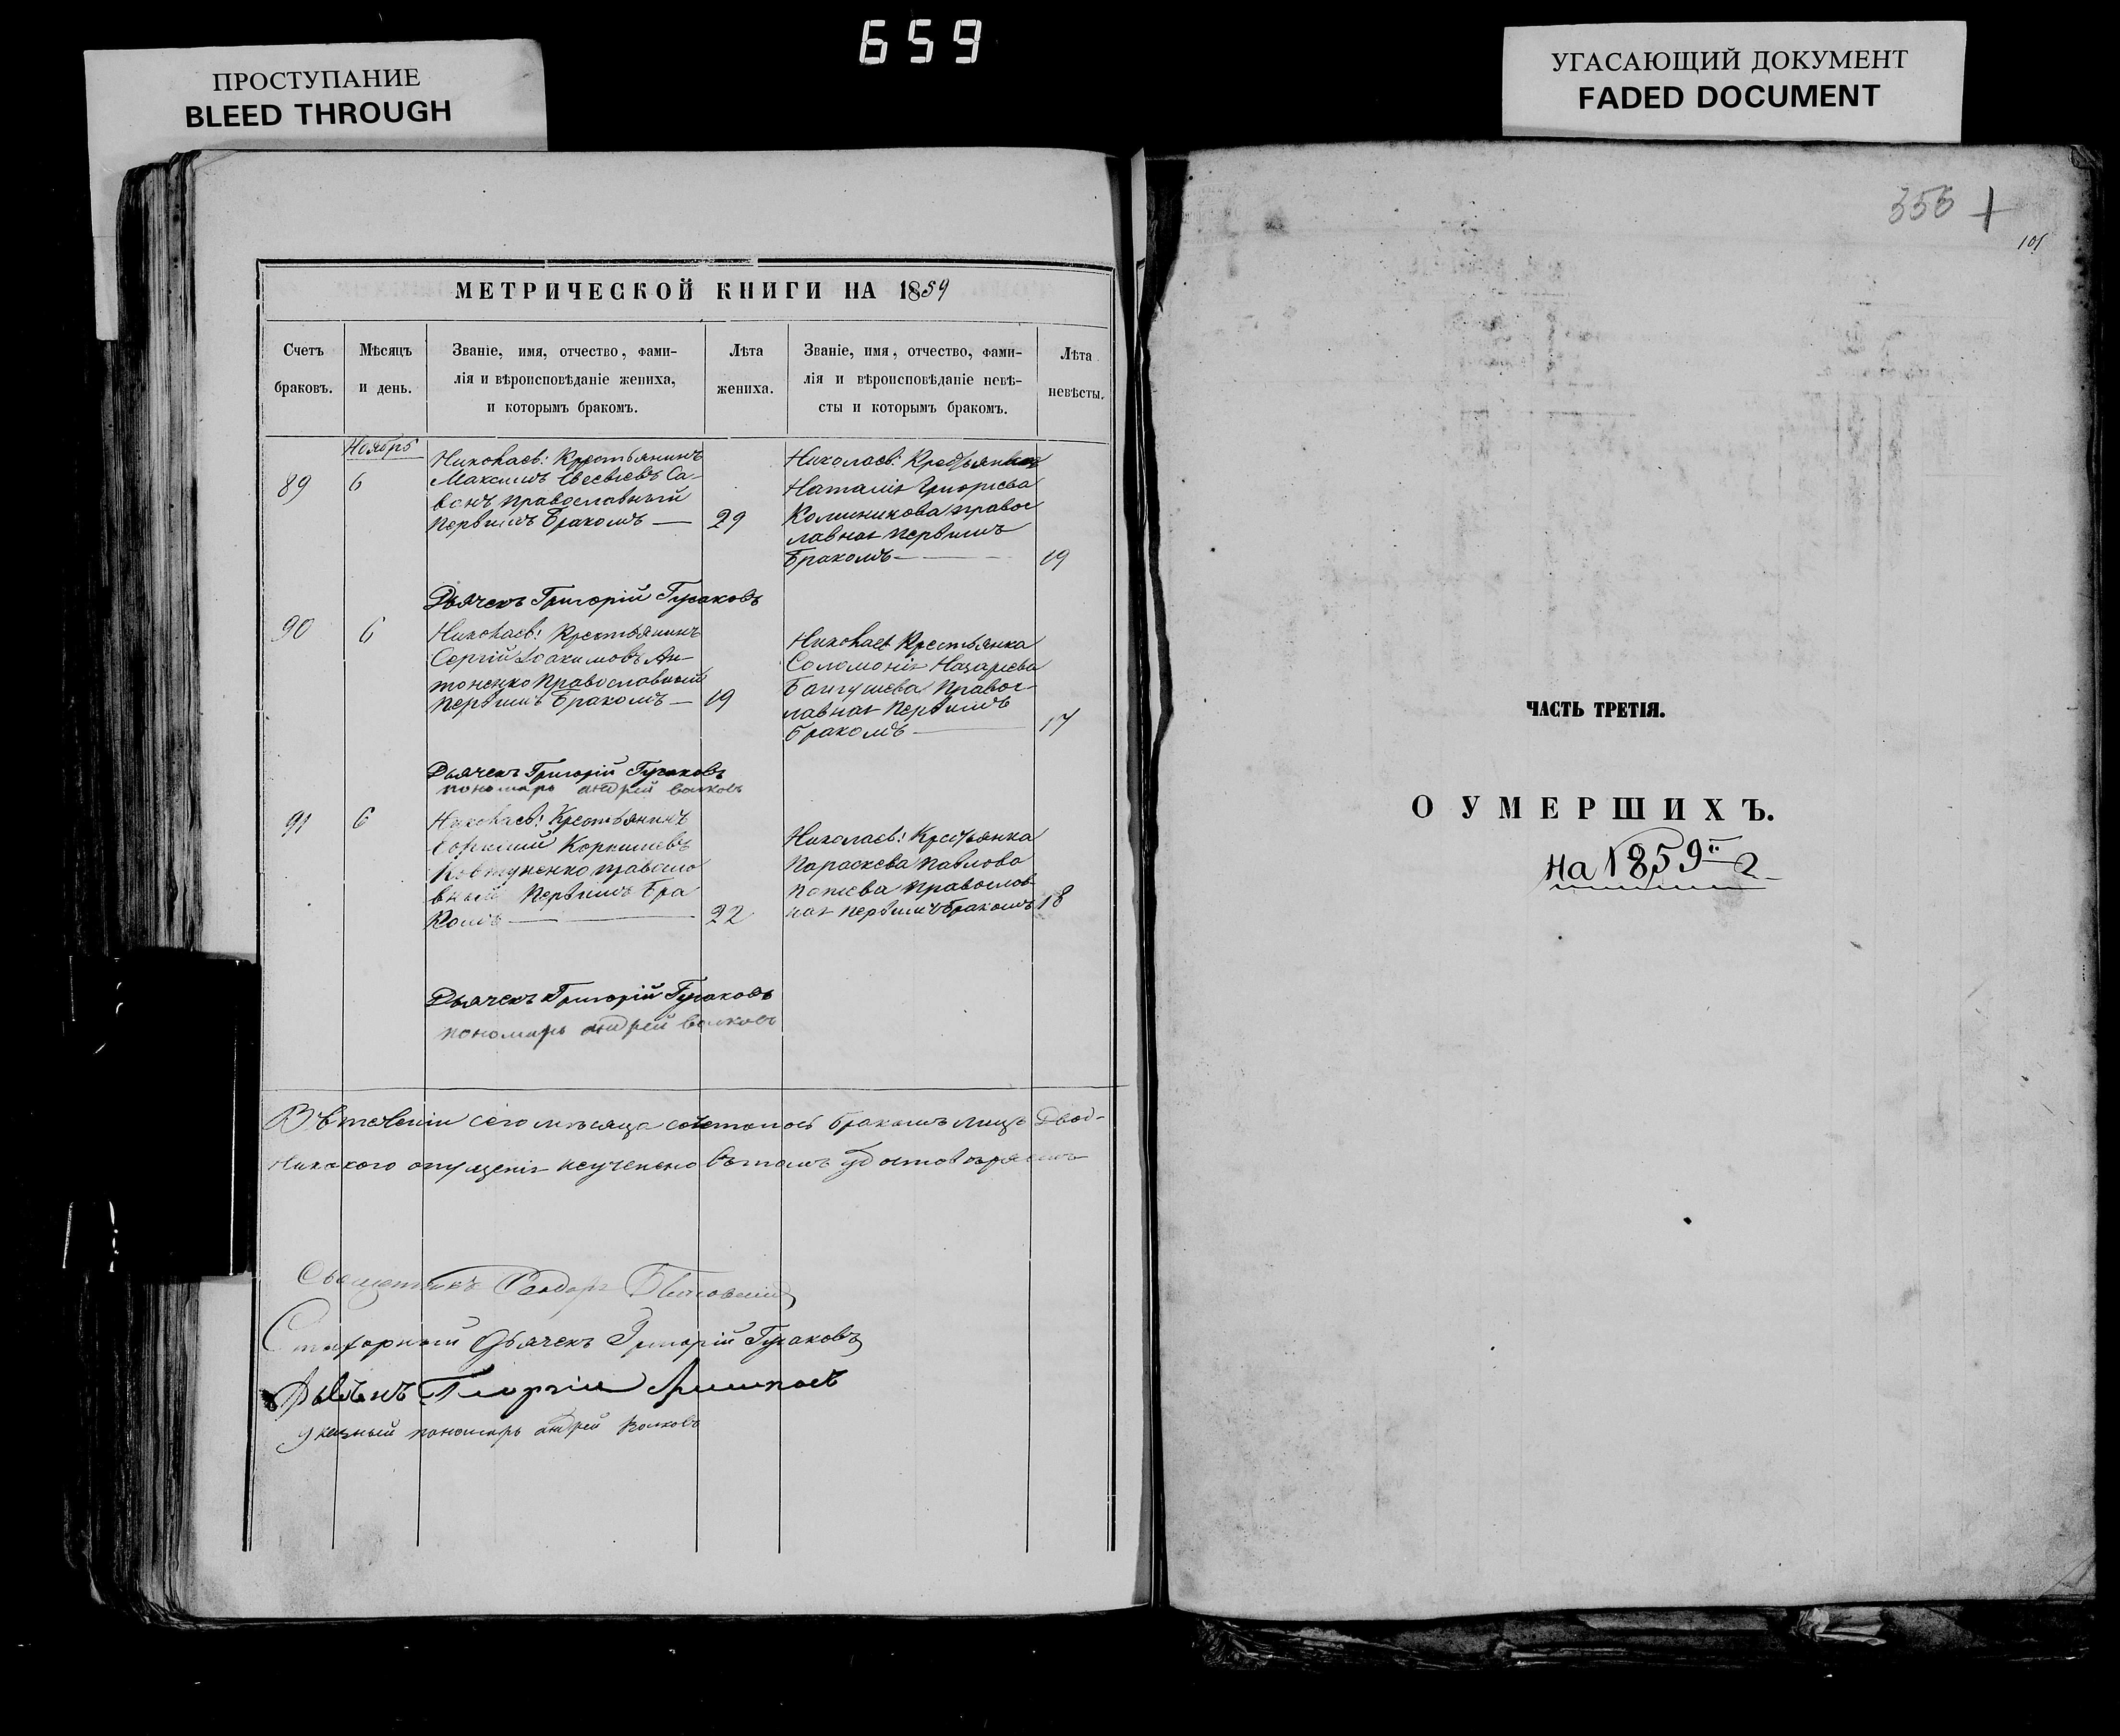 659
ПРОСТУПАНИЕ
BLEED THROUGH
УГАСАЮЩИЙ ДОКУМЕНТ
FADED DOCUMENT
МЕТРИЧЕСКОЙ КНИГИ НА 1859
Счетъ браковъ.
Мѣсяцъ и день.
Званіе, имя, отчество, фами-
лія и вѣроисповѣданіе жениха,
и которымъ бракомъ.
Лѣта жениха.
Званіе, имя, отчество, фами-
лія и вѣроисповѣданіе невѣ-
сты и которымъ бракомъ.
Лѣта невѣсты.
Ноябрь
89
6
Николаев: Крестьянинъ
Максимъ Са-
вонъ православный
Первымъ Бракомъ —
29
Николаев: Крестьянка
Наталія Григорьева
Калиникова правос
лавная первымъ
Бракомъ —
19
Дьячекъ Григорій Гусаковъ
90
6
Николаев: Крестьянинъ
Сергій Іоакимовъ Ан-
тоненко Православный
первымъ Бракомъ —
19
Николаев Крестьянка
Соломонія Назарьева
Правос-
лавная Первымъ
бракомъ —
17
Дьячекъ Григорій Гусаковъ
пономарь андрей волковъ
91
6
Николаев: Крестьянинъ
Корнилевъ
Ковтуненко правосла
вный Первымъ Бра
комъ —
22
Николаев: Крестьянка
Параскева Павлова
православ
ная первымъ Бракомъ
18
Дьячекъ Григорій Гусаковъ
пономарь андрей волковъ
Въ теченіи сего мѣсяца бракомъ лицъ
Никакого опущенія неучинено въ томъ удостовѣряемъ
Священникъ
Дьячекъ Григорій Гусаковъ
Георгій
указный пономарь андрей Волковъ
356
101
ЧАСТЬ ТРЕТІЯ.
О УМЕРШИХЪ.
на 1859й г